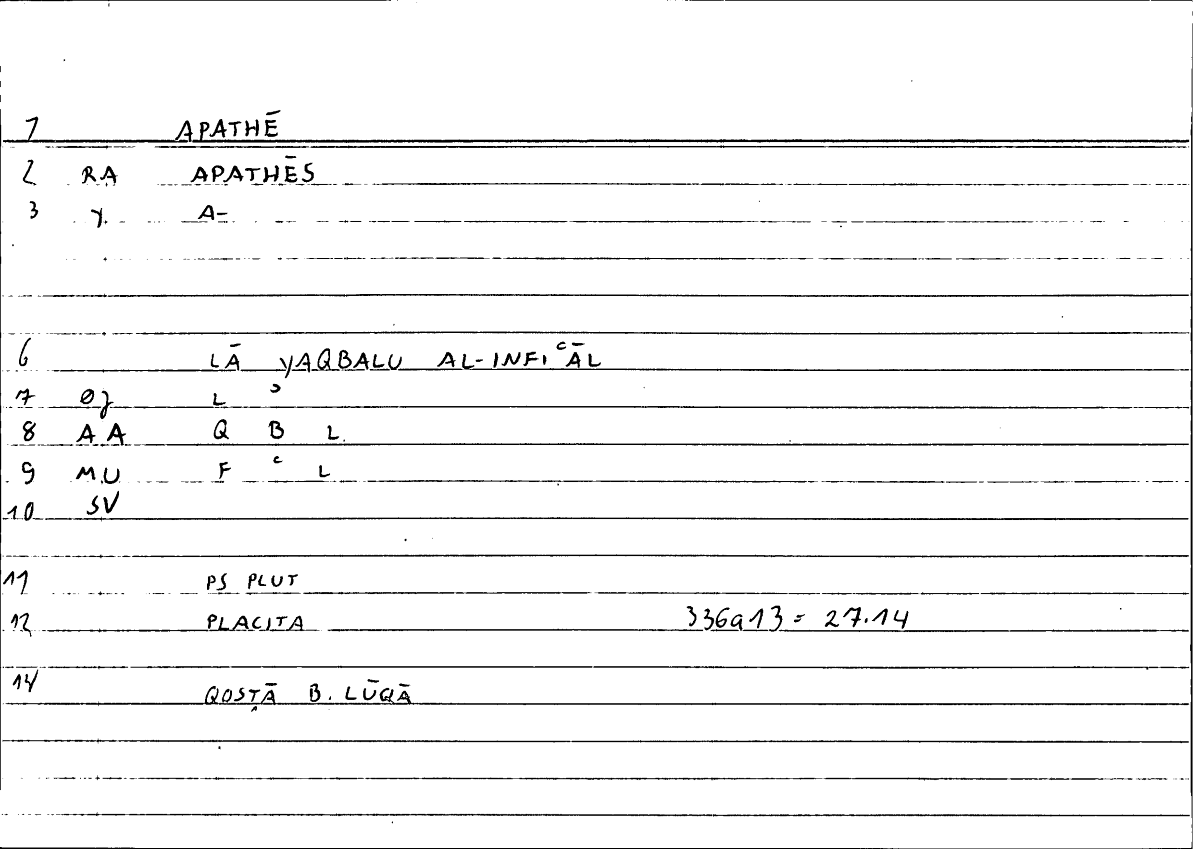 1 APATHĒ
2 RA APATHĒS
3 Y. A-
6 LĀ YAQBALU AL-INFIʿĀL
7 L ʾ
8 AA Q B L
9 MU F ʿ L
10 SV
11 PS PLUT
12 PLACITA 336a13 = 27.14
14 QOSṬĀ B. LŪQĀ